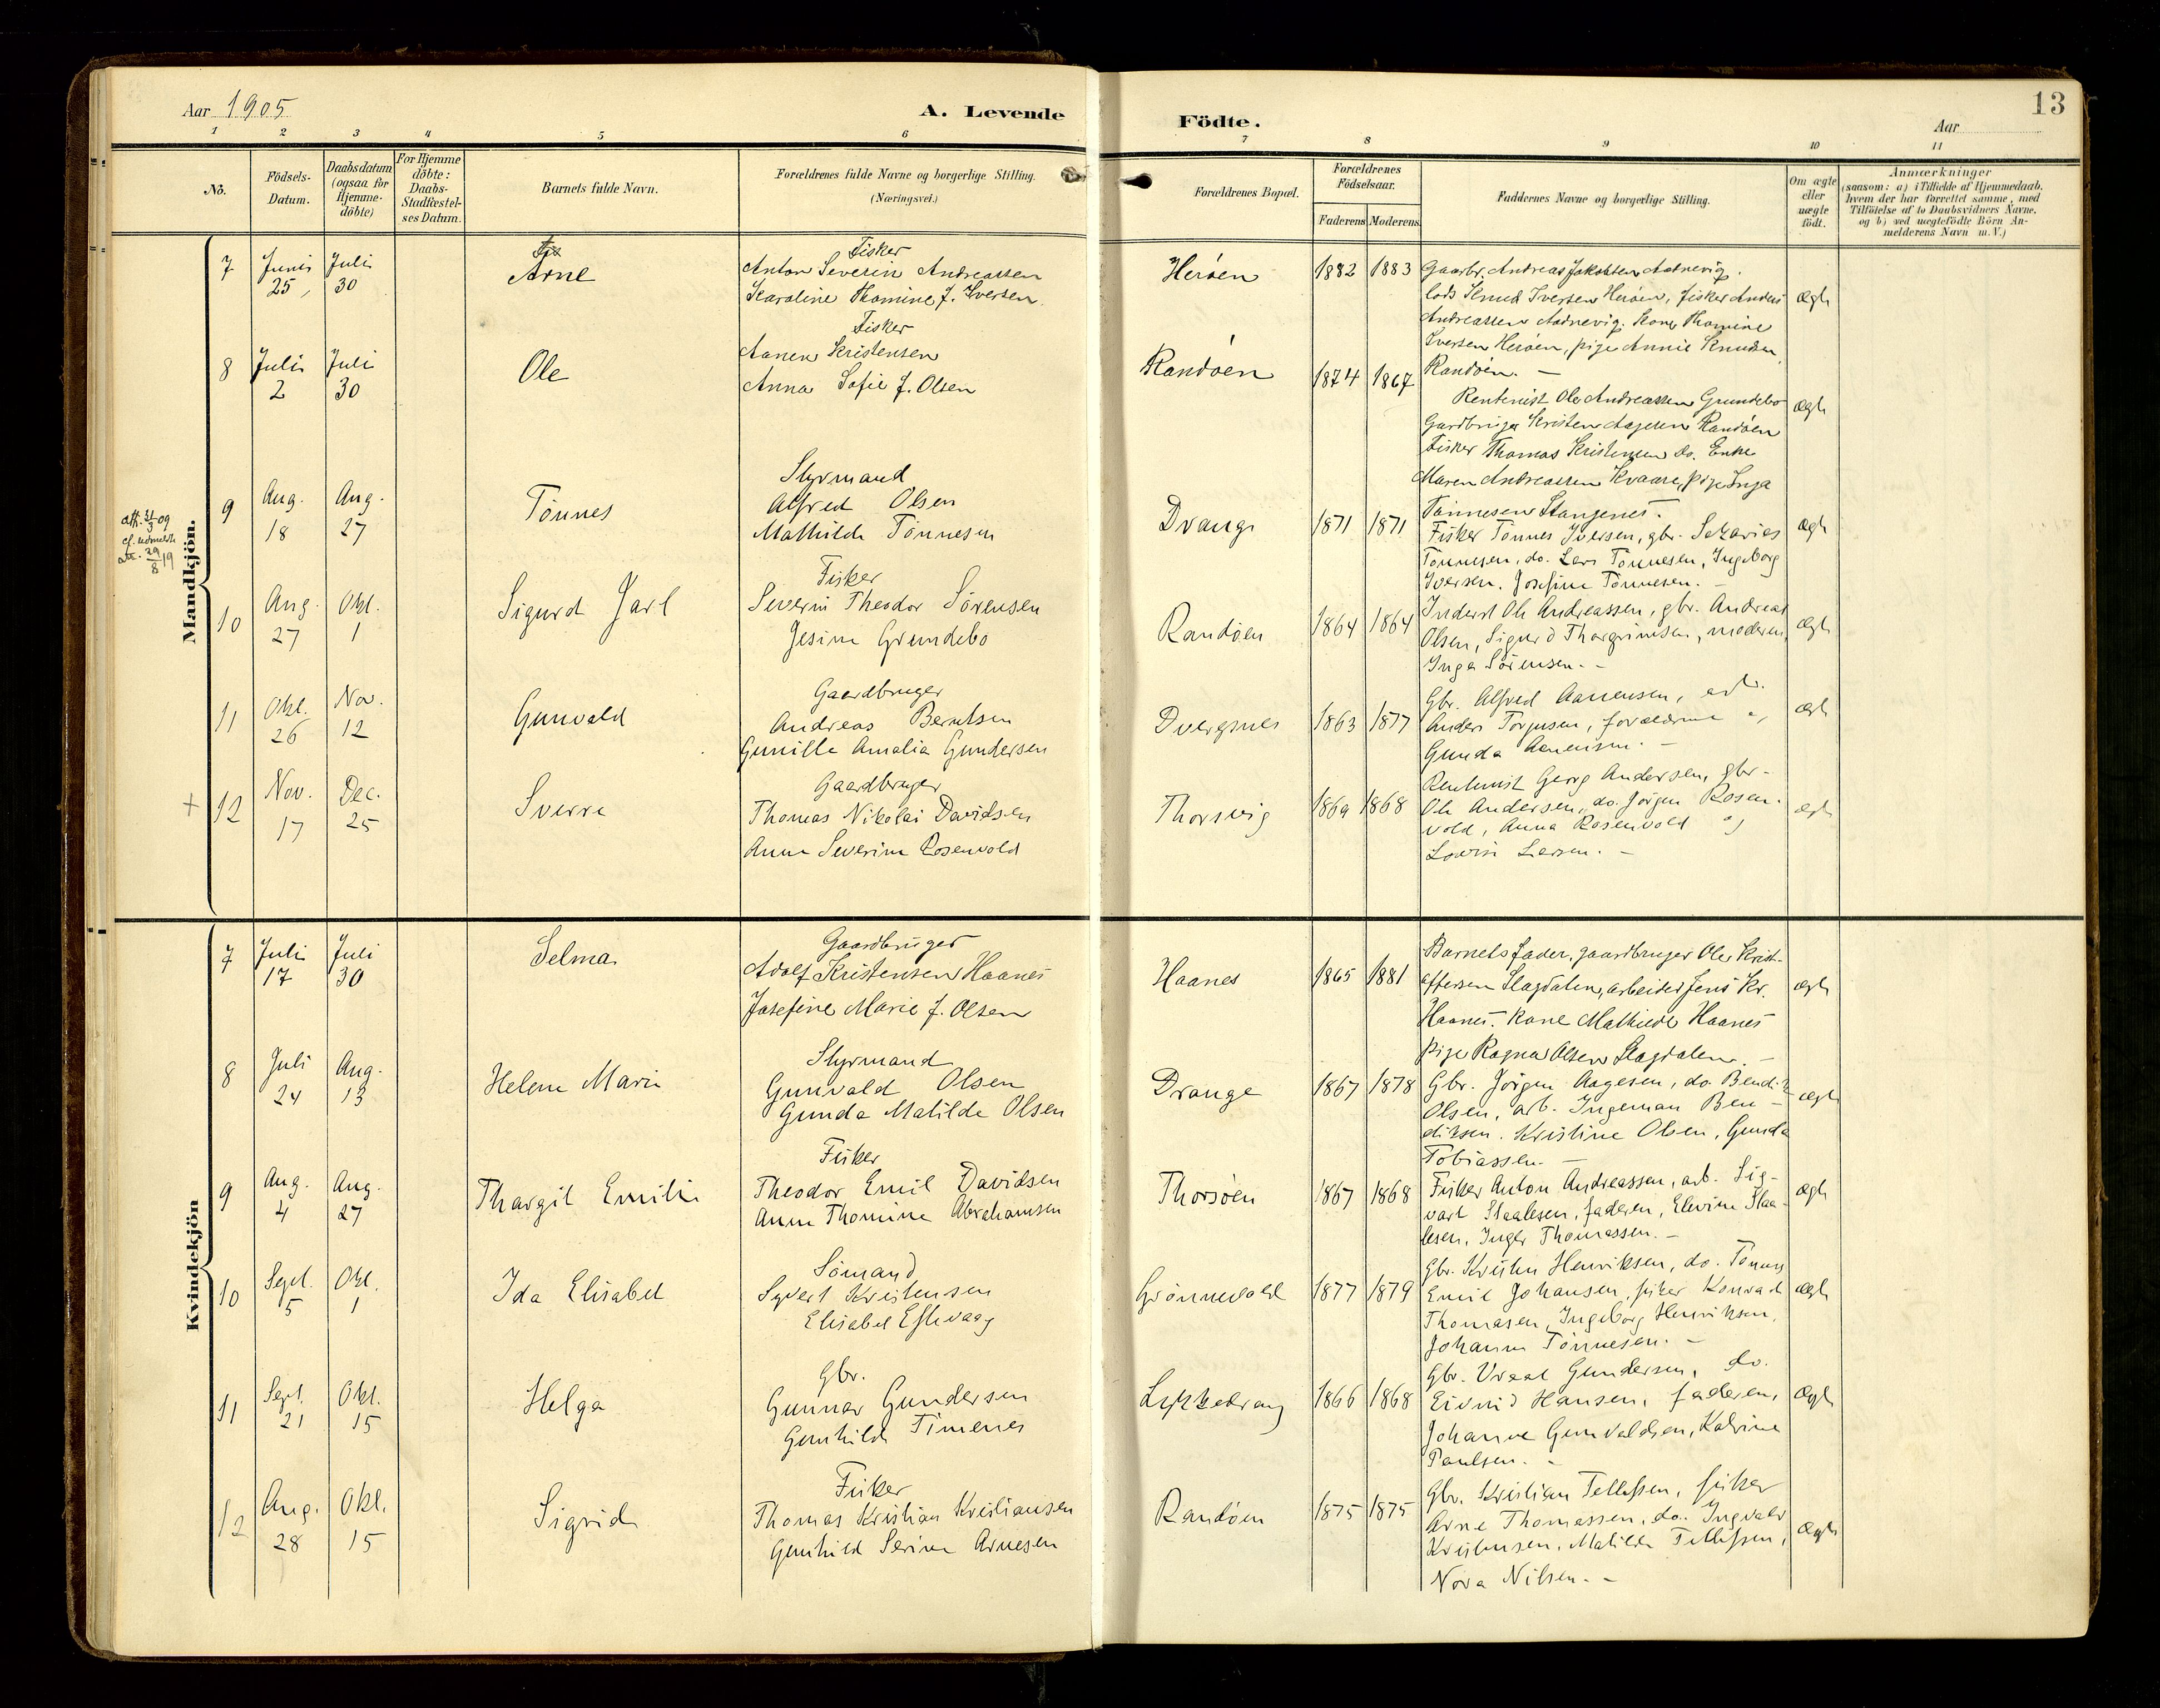 Aar 1905
A. Levende
Födte.
Aar
13
1 2 3 4 5 6 7 8 9 10 11
No.
Födsels-
Datum.
Daabsdatum
(ogsaa for
Hjemme-
döbte)
For Hjemme
döbte:
Daabs-
Stadfæstel-
ses Datum.
Barnets fulde Navn.
Forældrenes fulde Navne og borgerlige Stilling.
(Næringsvei.)
Forældrenes Bopæl.
Forældrenes
Födselsaar.
Faderens Moderens
Faddernes Navne og borgerlige Stilling.
Om ægte
eller
uægte
födt.
Anmærkninger
(saasom: a) i Tilfælde af Hjemmedaab,
hvem der har forrettet samme, med
Tilföielse af to Daabsvidners Navne.
og b) ved uægtefödte Börn An-
melderens Navn m.V.)
Mandkjön.
7
Juni
25
Juli
30
Arne
Fisker
Anton Severin Andreassen
Karoline Thomine f. Iversen
Heröen
1882 1883
Gaarbr. Andreas Jakobsen Aadnevig.
Lods Knud Iversen Heröen, fisker Anders
Andreassen Aadnevig. Kone Thomine
Iversen Heröen, pige Annie Knudsen
Randöen. -
ægte
8
Juli
2
Juli
30
Ole
Fisker
Aanen Kristensen
Anna Sofie f. Olsen
Randöen
1874 1867
Rentenist Ole Andreassen Grundebo
Gardbruger Kristen Aagesen Randöen
Fisker Thomas Kristensen do. Enke
Maren Andreassen Kvaase, pige Inga
Tönnesen Stangenes.
ægte
att. 31/3 09
cf. udmeldt
att. 29/8 19
9
Aug.
18
Aug.
27
Tönnes
Styrmand
Alfred Olsen
Mathilde Tönnesen
Drange
1871 1871
Fisker Tönnes Iversen, gbr. Sakarias
Tönnesen, do. Lars Tönnesen, Ingeborg
Iversen. Josefine Tönnesen. -
ægte
10
Aug.
27
Okt.
1
Sigurd Jarl
Fisker
Severin Theodor Sörensen
Jesine Grundebo
Randöen
1864 1864
Inderst Ole Andreassen, gbr. Andreas
Olsen, Sigurd Thorgrimsen, moderen,
Inga Sörensen. -
ægte
11
Okt.
26
Nov.
12
Gunvald
Gaardbruger
Andreas Berntsen
Gunille Amalia Gundersen
Dvergsnes
1863 1877
Gbr. Alfred Aanensen,
Anders Torjusen, forældrene og
Gunda Aanensen. -
ægte
+ 12
Nov.
17
Dec.
25
Sverre
Gaardbruger
Thomas Nikolai Davidsen
Anne Severine Rosenvold
Thorsvig
1869 1868
Rentenist Georg Andersen, gbr.
Ole Andersen, do. Jörgen Rosen-
vold, Anna Rosenvold og
Lovise Larsen. -
ægte
Kvindekjön
7
Juli
17
Juli
30
Selma
Gaardbruger
Adolf Kristensen Haanes
Josefine Marie f. Olsen
Haanes
1865 1881
Barnets fader, gaardbruger Ole Krist-
offersen Slagdalen, arbeider Jens Kr.
Haanes. kone Mathilde Haanes
pige Ragna Olsen Slagdalen. -
ægte
8
Juli
24
Aug.
13
Helene Marie
Styrmand
Gunvald Olsen
Gunda Matilde Olsen
Drange
1867 1878
Gbr. Jörgen Aagesen, do. Bendik
Olsen, arb. Ingeman Ben-
diksen. Kristine Olsen, Gunda
Tobiassen. -
ægte
9
Aug.
4
Aug.
27
Thargit Emilie
Fisker
Theodor Emil Davidsen
Anne Thomine Abrahamsen
Thorsöen
1867 1868
Fisker Anton Andreassen, arb. Sig-
vart Staalesen, faderen, Elevine Staa-
lesen, Inger Thomassen. -
ægte
10
Sept.
5
Okt.
1
Ida Elisabet
Sömand
Syvert Kristensen
Elisabet Eftevaag
Grönnevold
1877 1879
Gbr. Kristen Henriksen, do. Tönnes
Emil Johansen, fisker Konrad
Thomasen, Ingeborg Henriksen,
Johanne Tönnesen. -
ægte
11
Sept.
21
Okt.
15
Helga
Gbr.
Gunnar Gundersen
Gunhild Timenes
Lykkedrang
1866 1868
Gbr. Vraal Gundersen, do.
Eivind Hansen, faderen,
Johanne Gunvaldsen, Katrine
Paulsen. -
ægte
12
Aug.
28
Okt.
15
Sigrid
Fisker
Thomas Kristian Kristiansen
Gunhild Serine Arnesen
Randöen
1875 1875
Gbr. Kristian Tellefsen, fisker
Arne Thomassen, do. Ingvald
Kristensen, Matilde Tellefsen,
Nora Nilsen. -
ægte